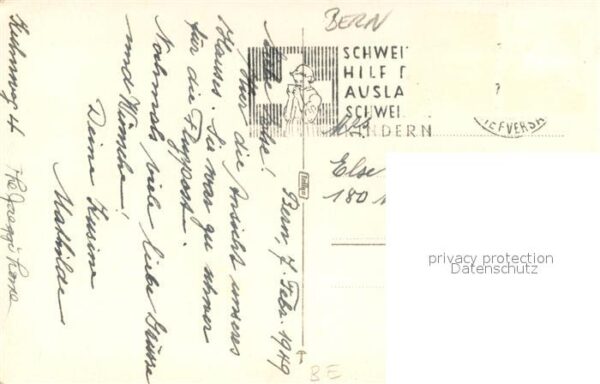 BERN
SCHWEI
HILF
AUSLA
SCHWEI
KINDERN
?
IEFVERS
Bern, 7. Febr. 1949
Liebe Else!
Hier die Ansicht unseres
Hauses. Sie war zu schwer
für die Flugpost.
Nochmals viele liebe Grüsse
und Wünsche!
Deine Kusine
Mathilde
4
The Jaeggi Home
Else
180
BE
privacy protection
Datenschutz